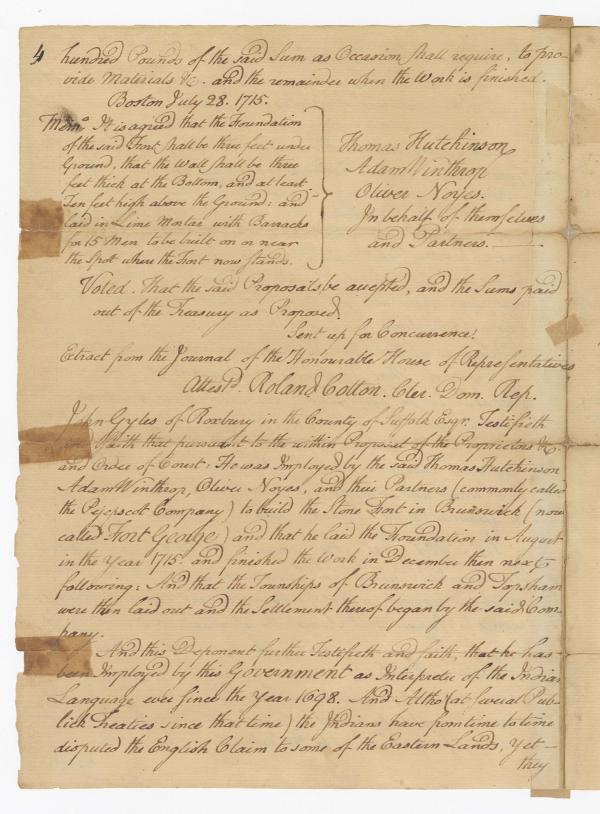 4
hundred Pounds of the said Sum as Occasion shall require, to pro-
vide Materials &c. and the remainder when the Work is finished.
Boston July 28. 1715.
Memo. It is agreed that the Foundation
of the said Fort shall be three feet under
Ground, that the Wall shall be three
feet thick at the Bottom, and at least
Ten feet high above the Ground: and
laid in Lime Mortar with Barracks
for 15 Men to be built on or near
the Spot where the Fort now stands.
Thomas Hutchinson
Adam Winthrop
Oliver Noyes.
In behalf of themselves
and Partners.
Voted. That the said Proposals, be accepted, and the Sums paid
out of the Treasury as Proposed.
Sent up for Concurrence.
Extract from the Journal of the Honourable House of Representatives
Attestd. Roland Cotton. Cler. Dom. Rep.
John Gyles of Roxbury in the County of Suffolk Esqr. Testifieth
and saith that pursuant to the within Proposal of the Proprietors &c.
and Order of Court: He was Imployed by the said Thomas Hutchinson
Adam Winthrop, Oliver Noyes, and their Partners (commonly called
the Pejepscot Company) to build the Stone Fort in Brunswick (now
called Fort George) and that he laid the Foundation in August
in the Year 1715. and finished the Work in December then next
following: And that the Townships of Brunswick and Topsham
were then laid out and the Settlement thereof began by the said Com-
pany.
And this Deponent further Testifieth and saith, that he has
been Imployed by this Government as Interpreter of the Indian
Language ever since the Year 1698. And Altho (at several Pub-
lick Treaties since that time) the Indians have from time to time
disputed the English Claim to some of the Eastern Lands, Yet
they